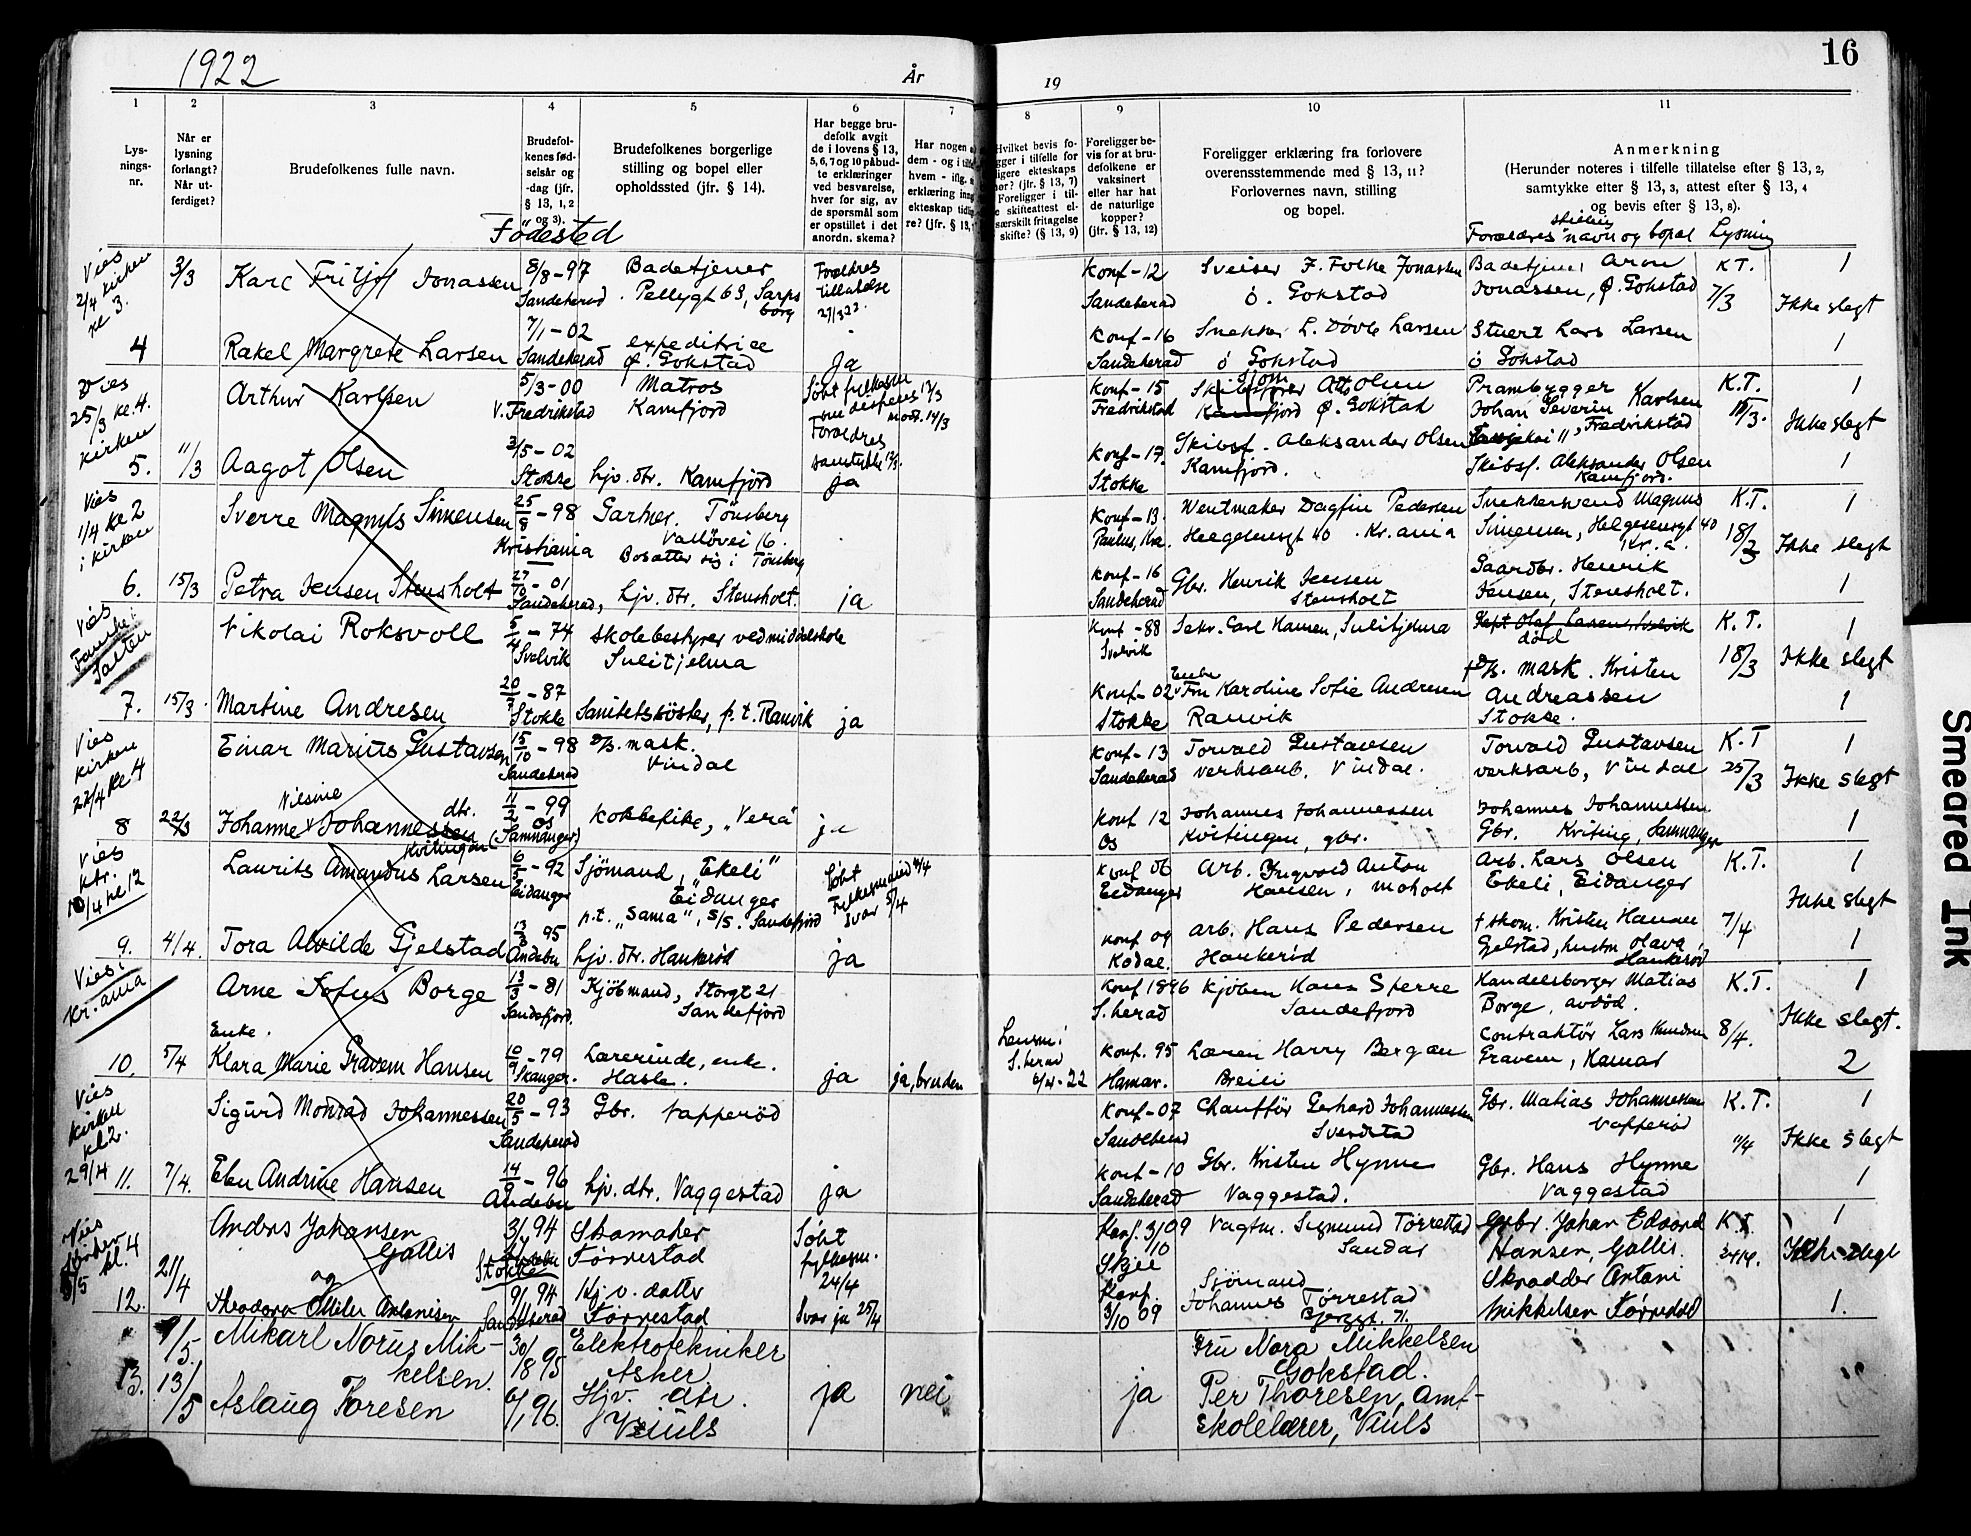 1922
År
19
16
1
2
3
4
5
6
7
8
9
10
11
Lys-
nings-
nr.
Når er
lysning
forlangt?
Når ut-
ferdiget?
Brudefolkenes fulle navn.
Brudefol-
kenes fød-
selsår og
-dag (jfr.
§ 13, 1, 2
og 3).
Födested
Brudefolkenes borgerlige
stilling og bopel eller
opholdssted (jfr. § 14).
Har begge bru-
defolk avgit
de i lovens § 13,
5, 6, 7 og 10 påbud-
te erklæringer
ved besvarelse,
hver for sig, av
de spørsmål som
er opstillet i det
anordn. skema?
Har nogen
dem - og i
hvem - iflg.
erklæring
ekteskap
re? (jfr. § 13,
Hvilket bevis fo-
gger i tilfelle for
ligere ekteskaps
? (jfr. § 13, 7)
Foreligger i til-
e skifteattest el-
særskilt fritagelse
skifte? (§ 13, 9)
Foreligger be-
vis for at bru-
defolkene er
vaksinert
eller har hat
de naturlige
kopper?
(jfr. § 13, 12)
Foreligger erklæring fra forlovere
overensstemmende med § 13, 11?
Forlovernes navn, stilling
og bopel.
Anmerkning
(Herunder noteres i tilfelle tillatelse efter § 13, 2,
samtykke efter § 13, 3, attest efter § 13, 4
og bevis efter § 13, 8).
stilling
Foræeldres navn og bopæl Lysning
Vies
2/4 kirken
kl 3.
4
3/3
Karl Fritjof Jonassen
8/8-97
Sandeherad
Badetjener
Pellygt 63, Sarps
borg
Foræeldres
tillatelse
Konf-12
Sandeherad
Sveiser F. Folke Jonassen
ö. Gokstad
Badetjener Arne
Jonassen, Ø. Gokstad
K.T.
7/3
1
Ikke slegt
Rakel Margrete Larsen
7/1-02
Sandeherad
expeditrice
Ø. Gokstad
Ja
Konf-16
Sandeherad
Snekker L. Dövle Larsen
ö Gokstad
Stuert Lars Larsen
ö Gokstad
1
Vies
25/3 kl. 4.
kirken
5.
11/3
Arthur Karlsen
5/3-00
V. Fredrikstad
Matros
Kamfjord
Konf-15
Fredrikstad
Otto Olsen
Ø. Gokstad
Prambygger
Johan Severin Karlsen
Fredrikstad
K.T.
1
Ikke slegt
Aagot Olsen
3/5-02
Stokke
hjv. dtr. Kamfjord
Foræeldres
samtykke
ja
Konf-17.
Stokke
Skibsf. Aleksander Olsen
Kamfjord.
Skibsf. Aleksander Olsen
Kamfjord.
1
Vies
1/4 kl 2
i kirken
6.
15/3
Sverre Magnus Simensen
25/8-98
Kristiania
Gartner. Tönsberg
Vallövei 16.
Bosætter sig i Tönsberg
Konf-13.
Paulus, Kra.
Dagfin Pedersen
Helgesensgt 40. Kr.ania
Snekkersvend Magnus
Simensen, Helgesensgt 40
Kr.a.
K.T.
18/3
1
Ikke slegt
Petra Jensen Stensholt
27/10-01
Sandeherad,
hjv. dtr. Stensholt.
ja
Konf-16
Sandeherad
Gbr. Henrik Jensen
Stensholt
Gaardbr. Henrik
Jensen, Stensholt.
1
Vies i
Fauske
Salten
7.
15/3.
Nikolai Roksvoll
5/4-74
Svelvik
skolebestyrer ved middelskole
Sulitjelma
Konf-88
Svelvik
Sekr. Carl Hansen, Sulitjelma
död
K.T.
18/3
1
Ikke slegt
Martine Andresen
20/7-87
Stokke
Sanitetssöster, p.t. Ranvik
ja
Konf-02
Stokke
Enke
Fru Karoline Sofie Andresen
Ranvik
mask. Kristen
Andreassen
Stokke.
1
Vies
Kirken
22/4 kl 4
8
22/3
Einar Marius Gustavsen
15/10-98
Sandeherad
mask.
Vindal
Konf-13
Sandeherad
Torvald Gustavsen
verksarb. Vindal.
Torvald Gustavsen
verksarb, Vindal
K.T
25/3
1
Ikke slegt
Nilsine
dtr.
Johanne Johannessen
Kvitingen
11/2-99
Os
(Samnanger)
kokkepike, "Vera"
ja
Konf 12
Os
Johannes Johannessen
Kvitingen, gbr.
Johannes Johannessen
Gbr. Kviting, Samnanger
1
Vies
ktr.
10/4 kl 12
9.
4/4.
Laurits Amandus Larsen
6/5-92
Eidanger
Sjömand, "Ekeli"
Eidanger
p.t. "Sama", S/S. Sandefjord
Søkt
Fylkesmand 4/4
svar 5/4
Konf 06
Eidanger
Arb. Ingvald Anton
Hansen, Moholt
Arb. Lars Olsen
Ekeli, Eidanger
K.T.
1
Ikke slegt
Tora Alvilde Gjelstad
95
Andebu
hjv. dtr. Haukeröd
ja
Konf 09
Kodal.
Arb. Hans Pedersen
Haukeröd
† skom. Kristen Hansen
Gjelstad, hustru Olava,
Haukeröd
7/4
1
Vies i
Kr.ania
10.
5/4
Arne Sofus Borge
13/3-81
Sandefjord.
Kjöbmand, Storgt 21
Sandefjord
Konf 1896
S.herad
Kjöbm Hans Sperre
Sandefjord
Handelsborger Matias
Borge, avdöd.
K.T.
1
Ikke slegt.
Enke.
Klara Marie Gravem Hansen
10/9-79
Skanger.
Lærerinde, enke.
Hasle.
ja
ja, bruden
Lensm i
S.herad
6/4-22
Konf. 95
Hamar.
Lærer Harry Bergan
Breili
Contraktör Lars Knudsen
Gravem, Hamar
8/4.
2
Vies
kirken
kl 2.
29/4
11.
7/4.
Sigurd Monrad Johannessen
20/5-93
Sandeherad
Gbr. Vapperöd
Konf-07
Sandeherad
Chaufför Gerhard Johannessen
Sverdstad
Gbr. Matias Johannessen
Vapperöd
K.T.
11/4
1
Ikke slegt
Elen Andrine Hansen
14/9-96
Andebu
hjv. dtr. Vaggestad
ja
Konf-10
Sandeherad
Gbr. Kristen Hynne
Vaggestad.
Gbr. Hans Hynne
Vaggestad
1
Vies
kirken
kl. 4
6/5
12.
21/4
Anders Johansen
Gallis
og
94
Stokke
Skomaker
Törrestad
Søkt
fylkesm.
24/4
Konf. 3/10 09
Skjee
Vagtm. Sigmund Törrestad
Sandar
Grbr. Johan Edvard
Hansen, Gallis.
K.T.
24/4.
1
Ikke slegt
Theodora Otilie Antonisen
94
Sandeherad
Hj v. datter
Törrestad
Svar ja 25/4
Konf.
3/10 09
Sjömand
Johannes Törrestad
Bjerggt. 71.
Skredder Antoni
Mikkelsen Törrestad
1.
13.
9/5.
13/5
Mikarl Norus Mik-
kelsen.
30/1 1895
Elektrotekniker
Asker
ja
nei
ja
Fru Nora Mikkelsen
Gokstad.
Aslaug Thoresen
6/1 96.
Hjv. dtr.
Veiuls
Per Thoresen, Amt-
skolelærer, Viuls
Smeared Ink